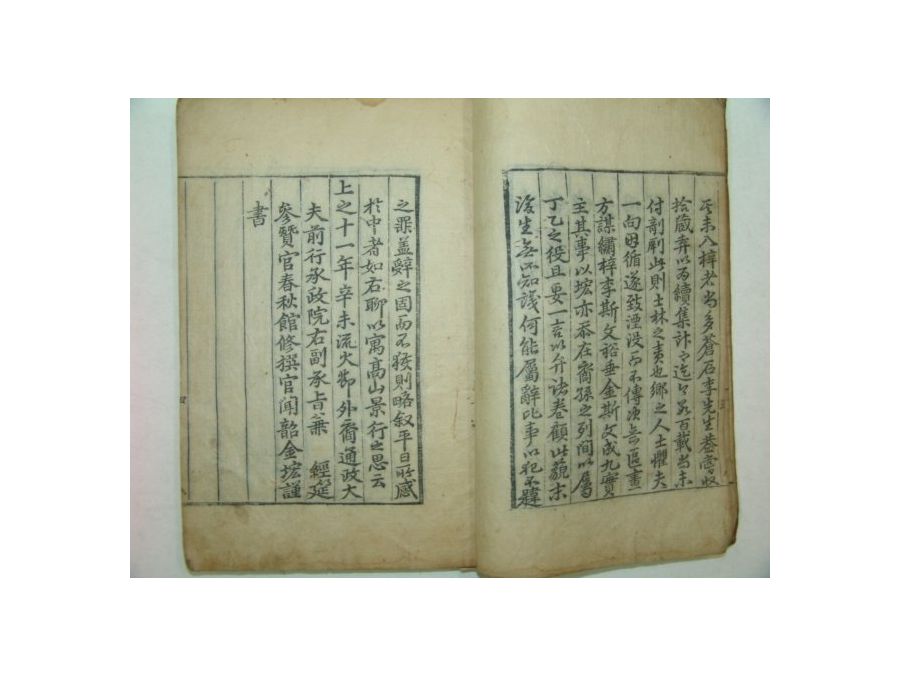 未入梓者尚多蒼石李先生嘗收
拾藏弆以爲續集計而迄今百載尚未
付剞劂此則士林之責也鄕之人士懼夫
一向因循遂致湮没而不傳須与匠畫
方謀繡梓李斯文裕垂金斯文成九實
主其事以㙆亦忝在裔孫之列間以屬
丁乙之役且要一言以弁諸卷顧此藐末
後生無所知識何能屬辭比事以犯不韙
之罪盖辭之固而不獲則略叙平日所感
扵中者如右聊以寓高山景行之思云
上之十一年辛未流火節外裔通政大
夫前行承政院右副承旨兼 經筵
參贊官春秋館修撰官聞韶金㙆謹
書